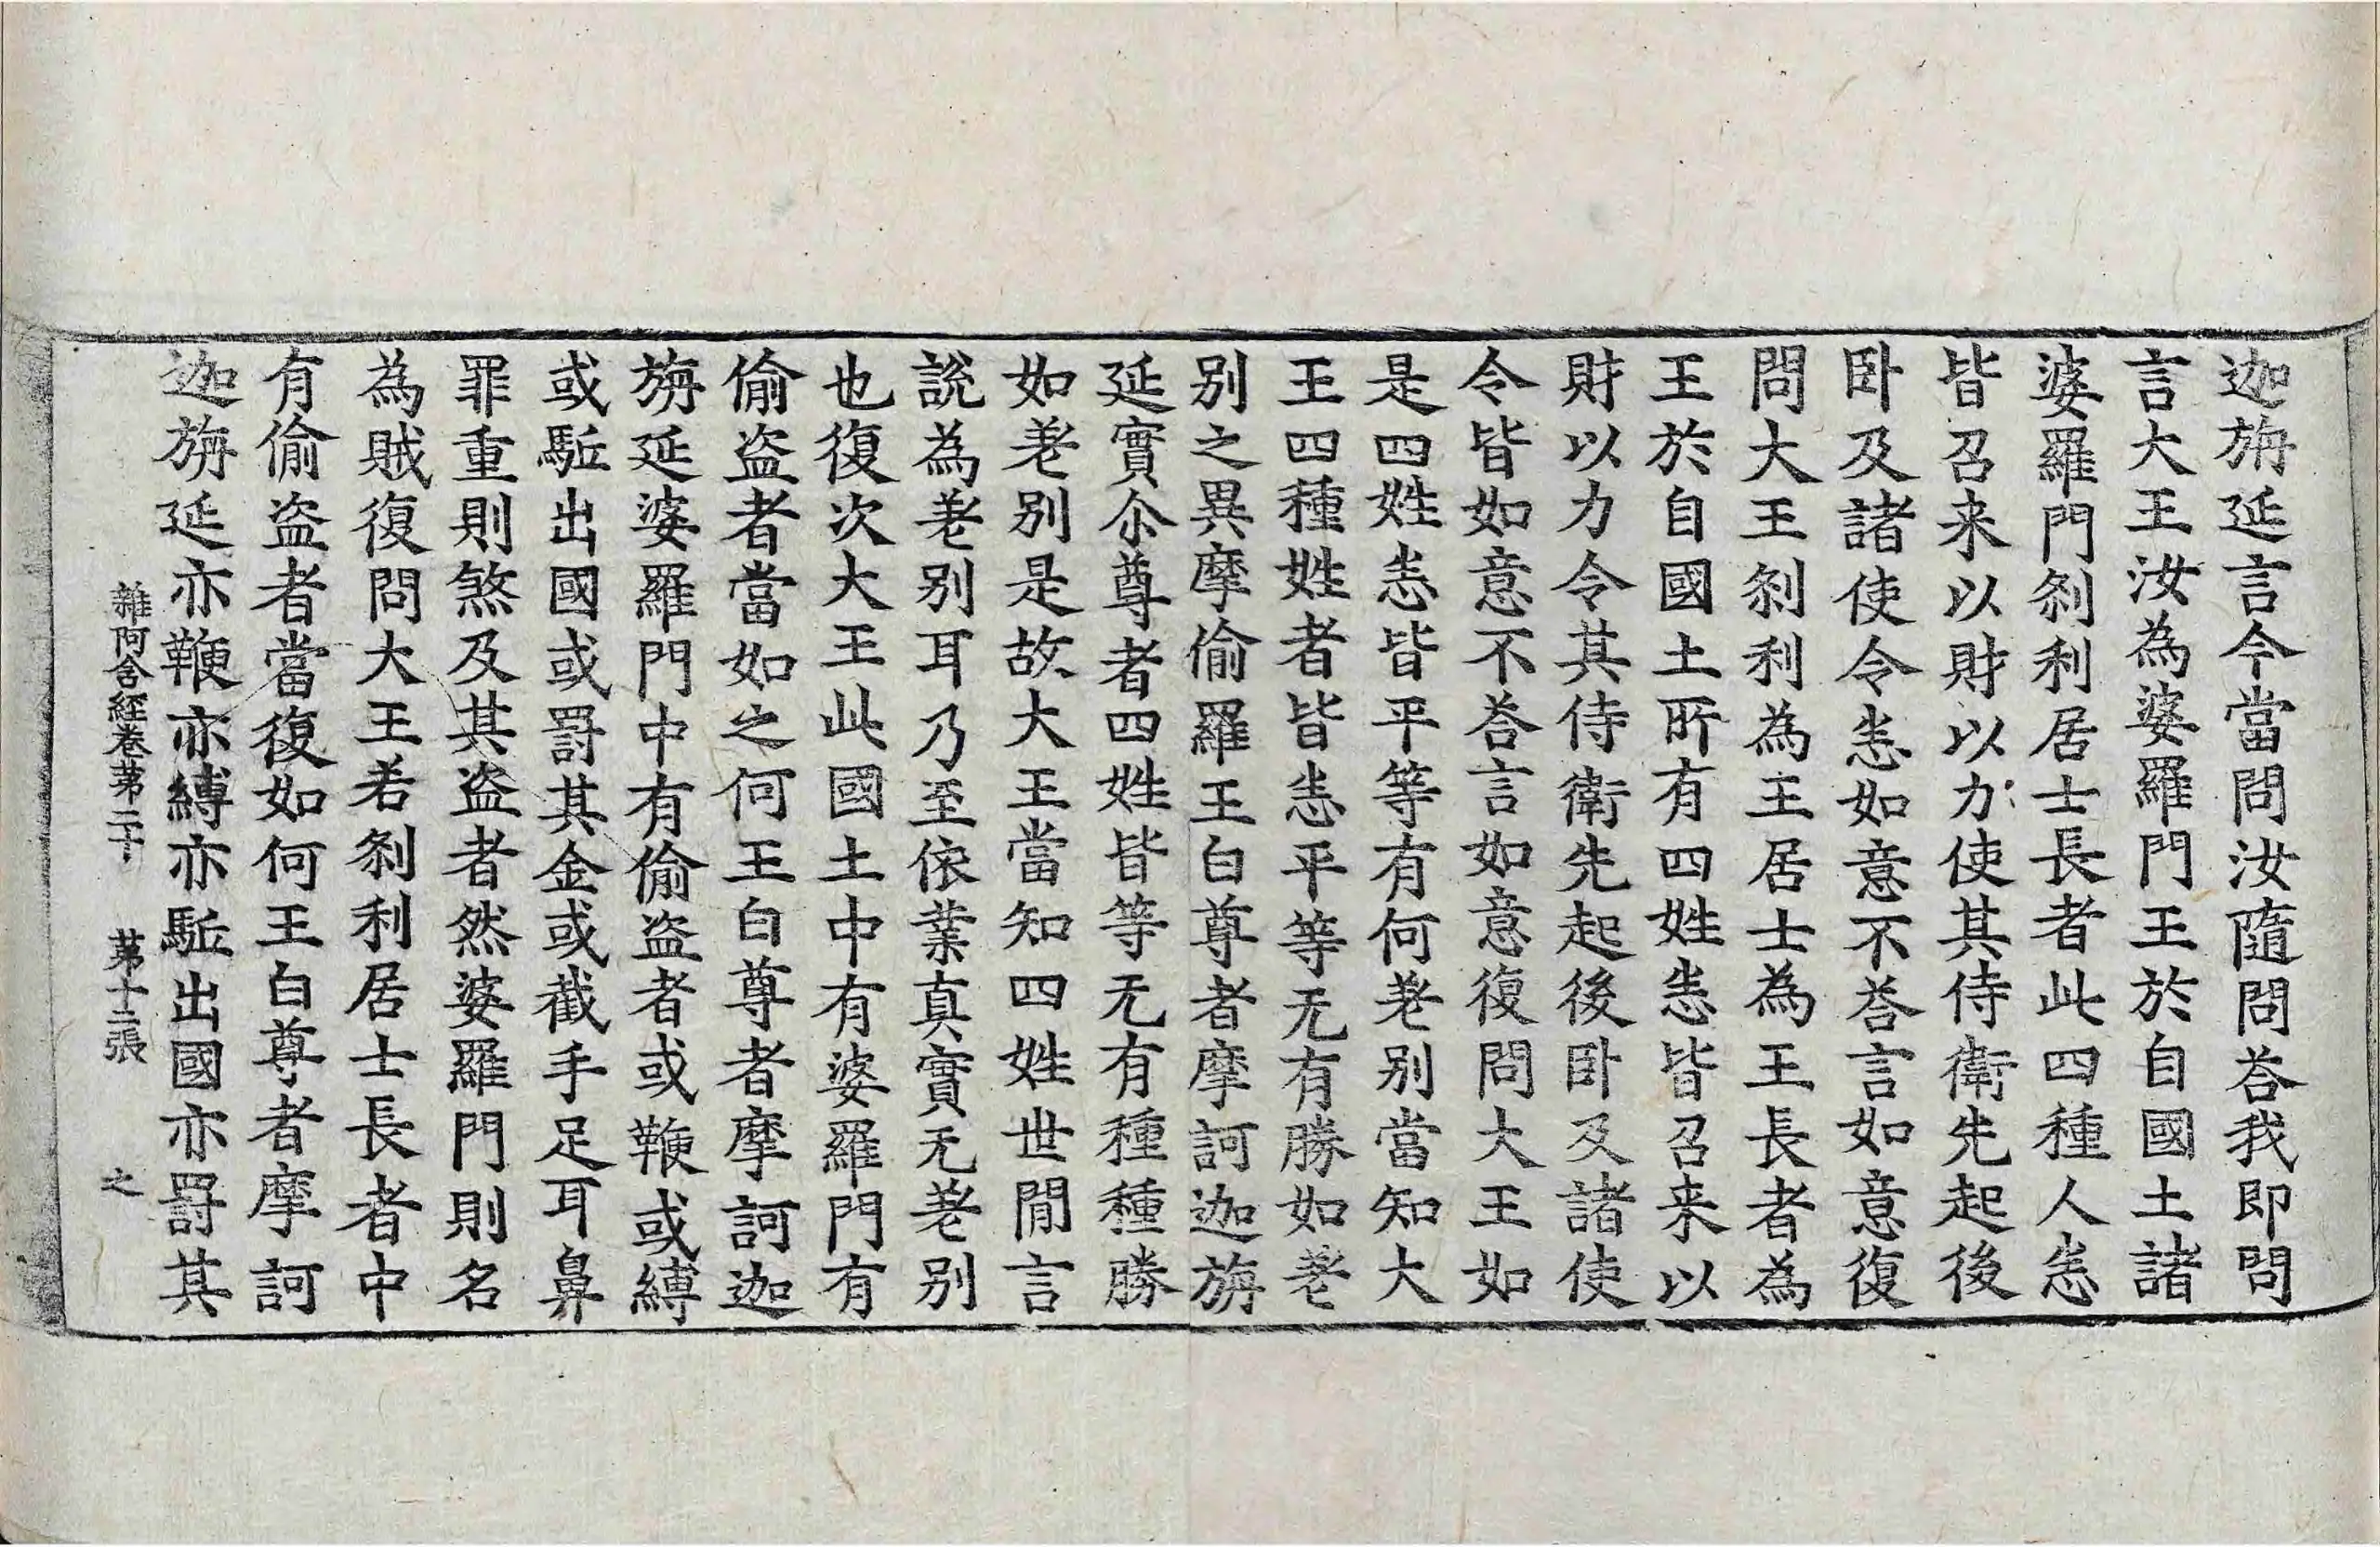 迦旃延言今當問汝隨問荅我即問
言大王汝為婆羅門王於自國土諸
婆羅門刹利居士長者此四種人悉
皆召来以財以力使其侍衛先起後
卧及諸使令悉如意不荅言如意復
問大王刹利為王居士為王長者為
王於自國土所有四姓悉皆召来以
財以力令其侍衛先起後卧及諸使
令皆如意不荅言如意復問大王如
是四姓悉皆平等有何差别當知大
王四種姓者皆悉平等无有勝如差
别之異摩偷羅王白尊者摩訶迦旃
延實尒尊者四姓皆等无有種種勝
如差别是故大王當知四姓世間言
說為差别耳乃至依業真實无差别
也復次大王此國土中有婆羅門有
偷盗者當如之何王白尊者摩訶迦
旃延婆羅門中有偷盗者或鞭或縛
或駈出國或罰其金或截手足耳鼻
罪重則煞及其盗者然婆羅門則名
為賊復問大王若刹利居士長者中
有偷盗者當復如何王白尊者摩訶
迦旃延亦鞭亦縛亦駈出國亦罰其
雜阿含經卷第二十 第十二張 之